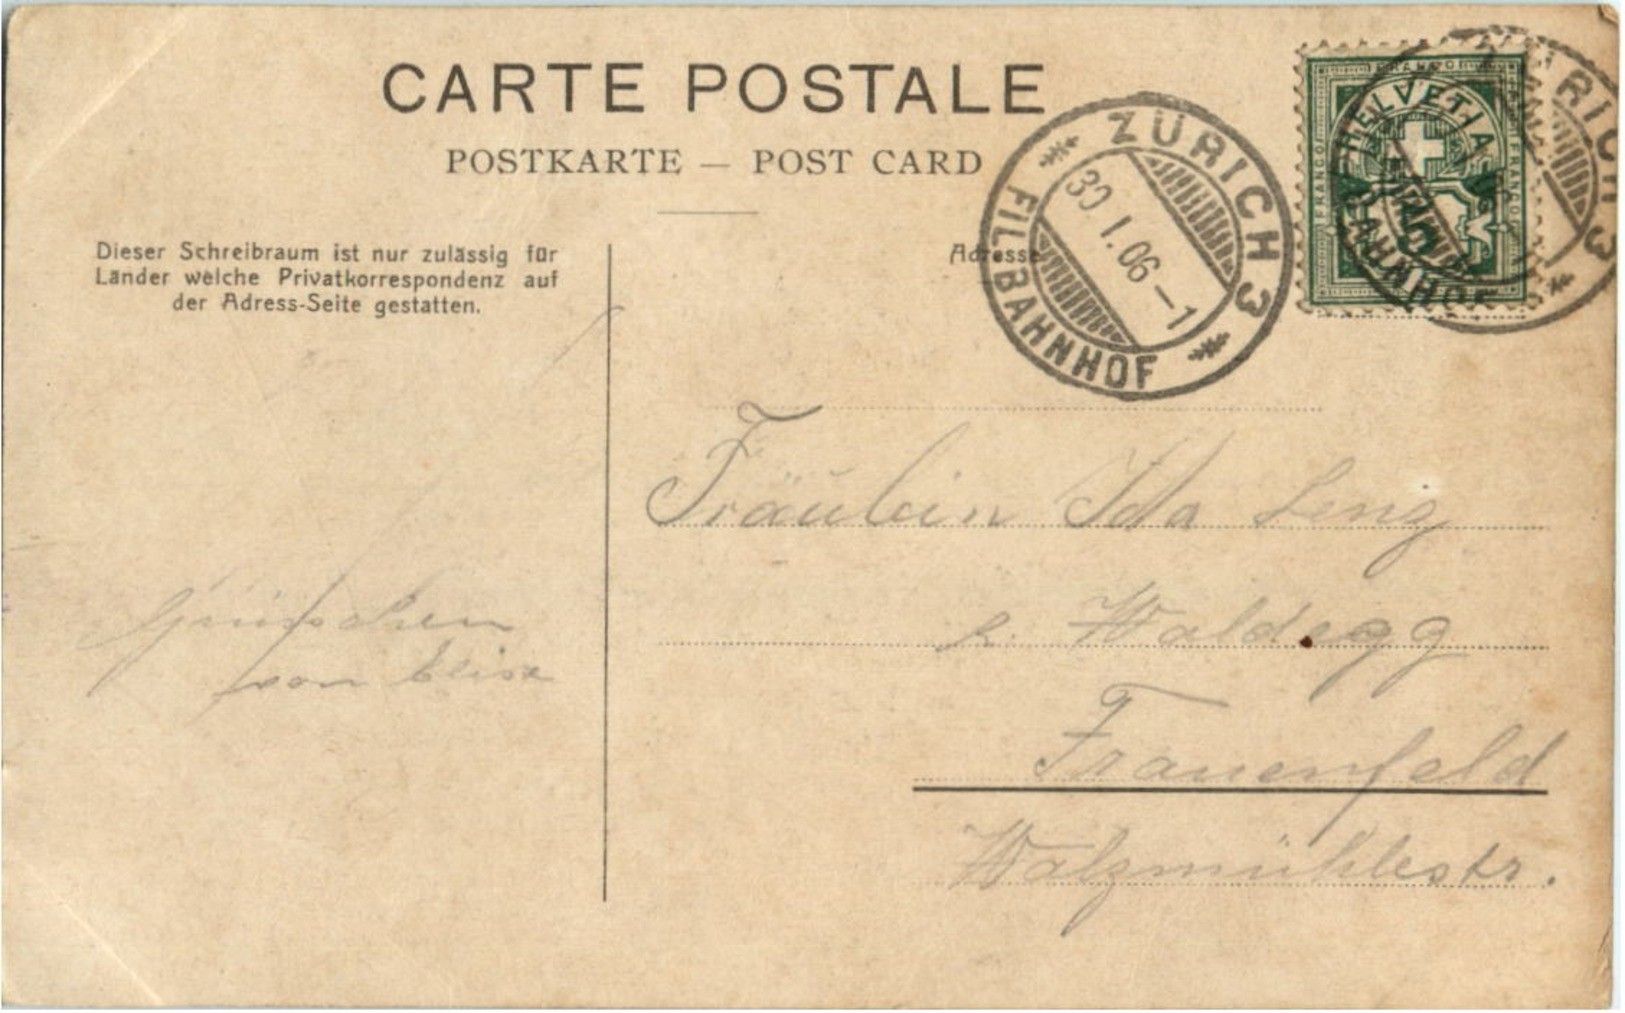 CARTE POSTALE
POSTKARTE — POST CARD
Dieser Schreibraum ist nur zulässig für
Länder welche Privatkorrespondenz auf
der Adress-Seite gestatten.
Adresse
ZÜRICH 3
30.I.06–1
FILBAHNHOF
FRANCO
HELVETIA
FRANCO
FRANCO
5
ZÜRICH 3
BAHNHOF
Fräulein Ida Lenz
z. Waldegg
Frauenfeld
Walzmühlestr.
Grüsschen
von Elise